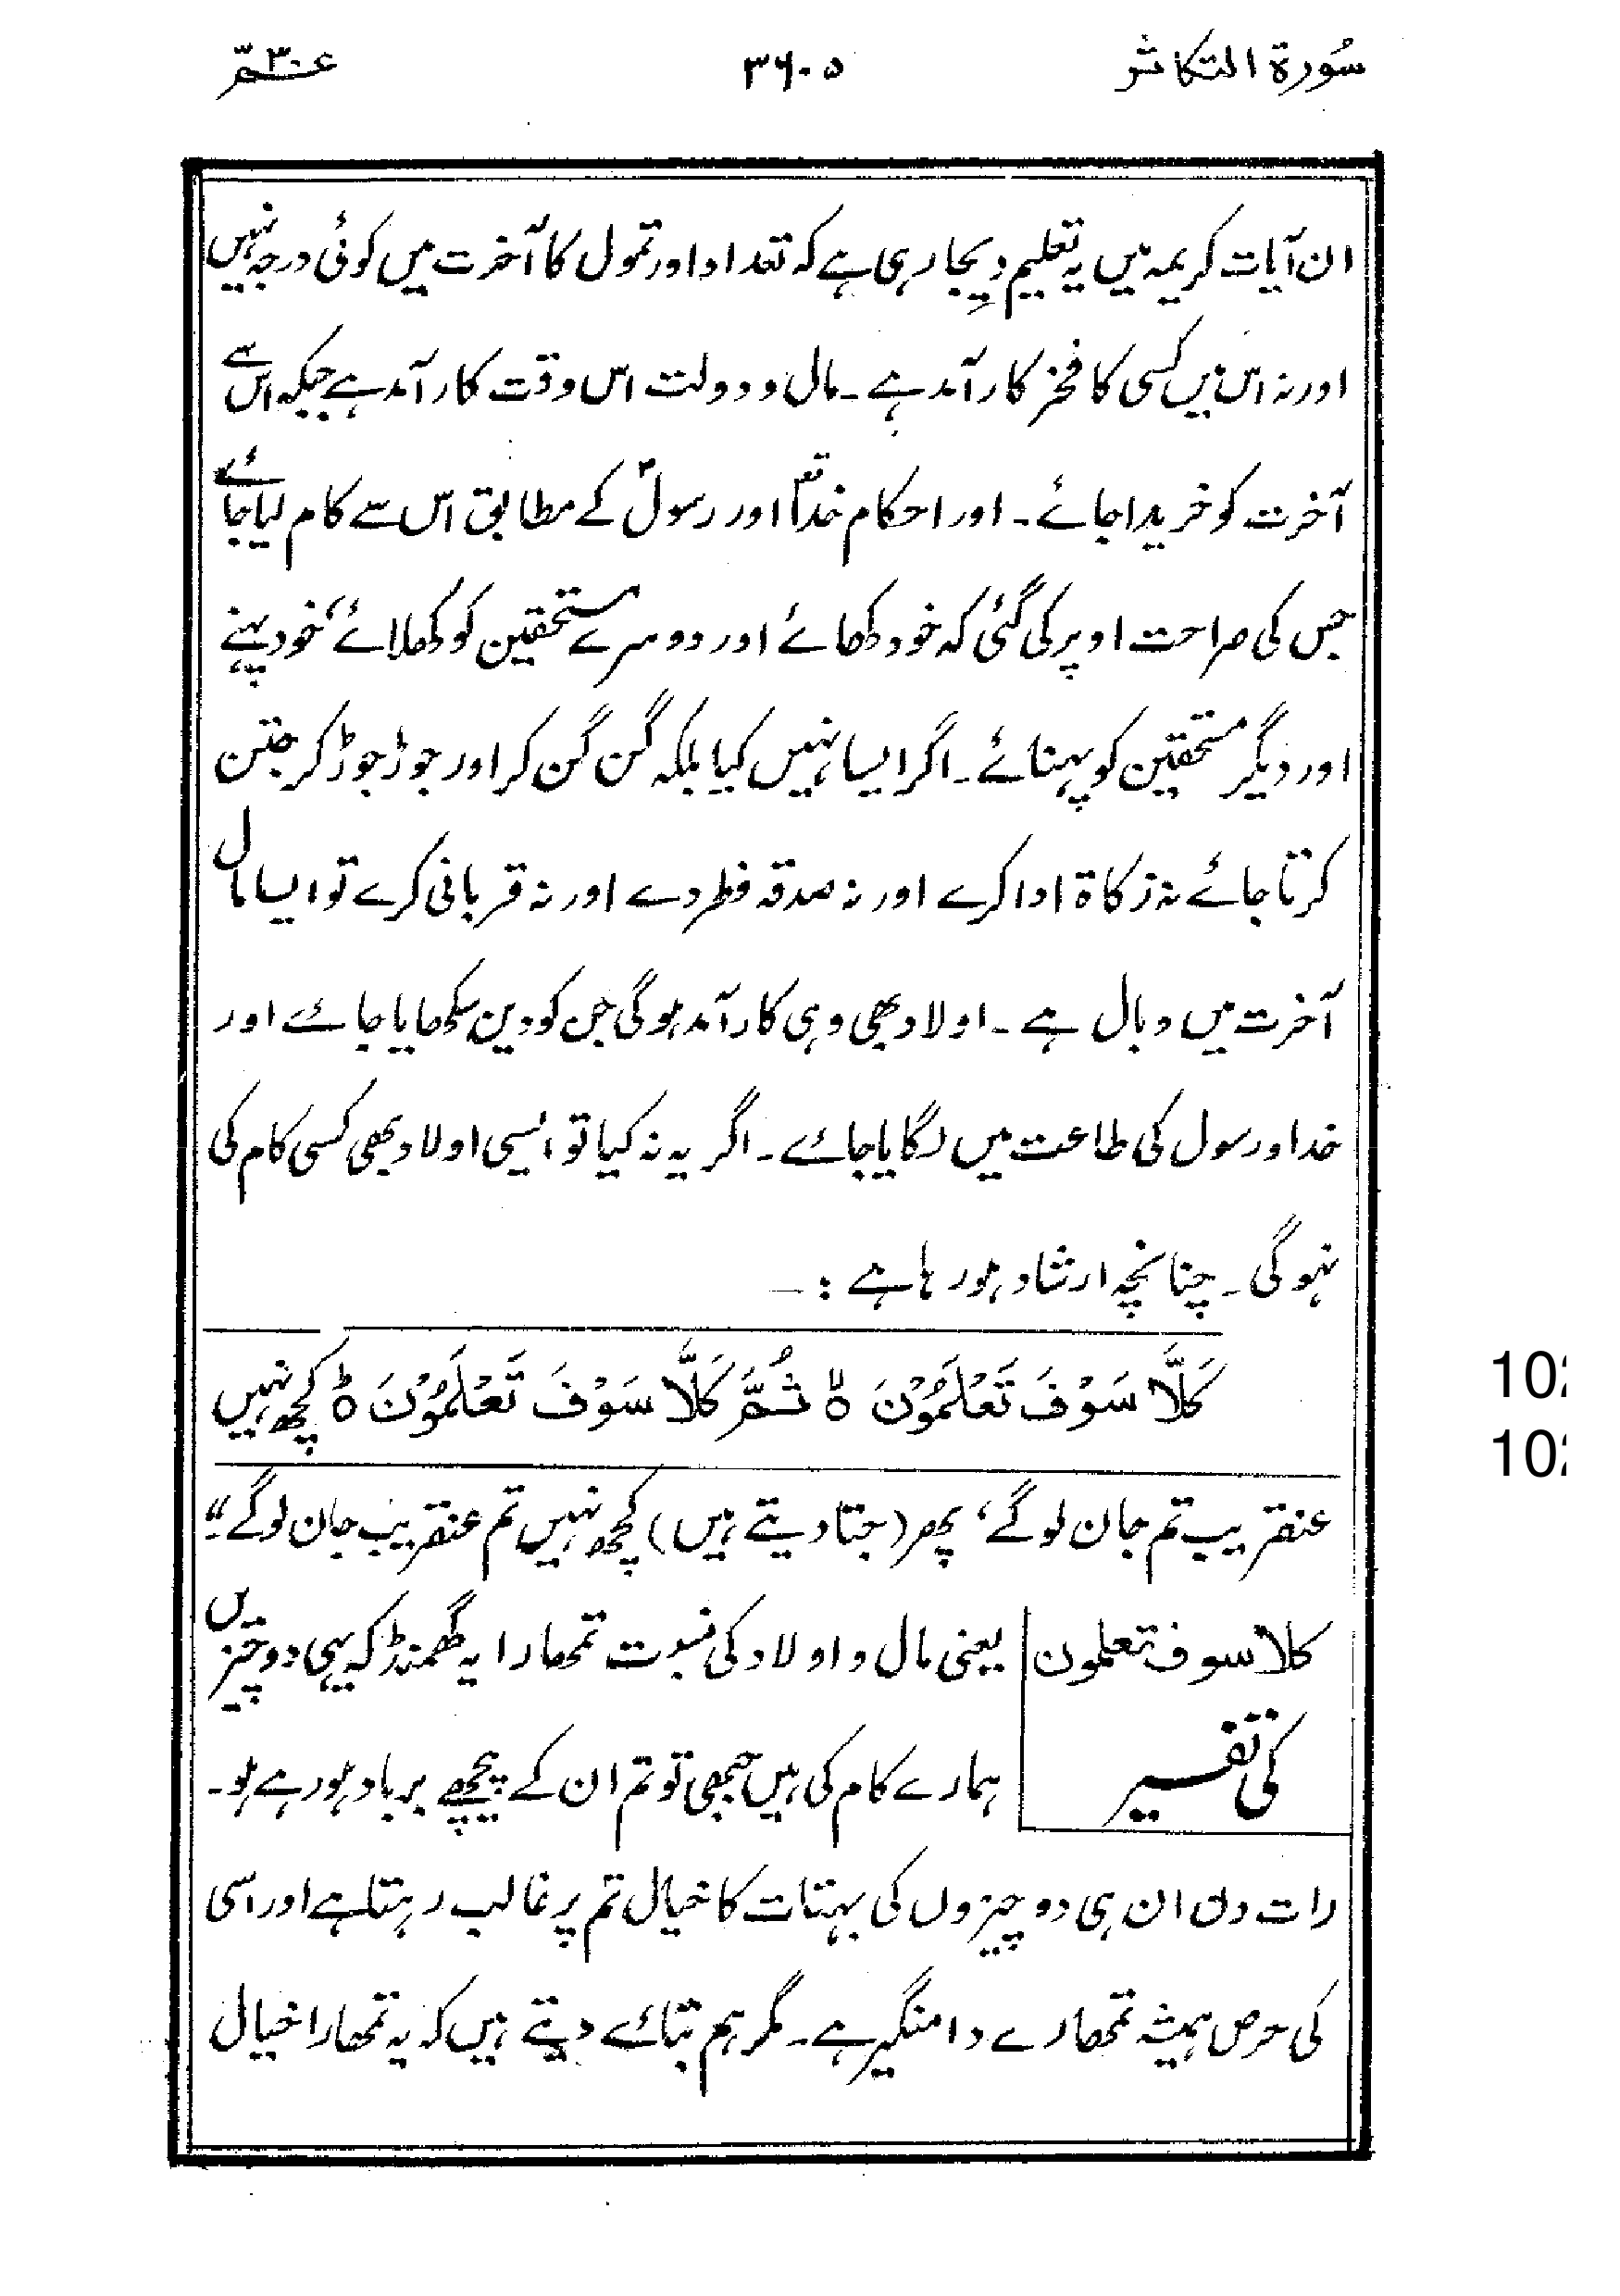 سُورۃ التکاثر
۳۶۰۵
عـمّ ۳۰
ان آیات کریمہ میں یہ تعلیم دیجارہی ہے کہ تعداد اور تمول کا آخرت میں کوئی درجہ نہیں
اور نہ اس میں کسی کا فخر کارآمد ہے ۔ مال و دولت اس وقت کارآمد ہے جبکہ اس سے
آخرت کو خریدا جائے ۔ اور احکام خداؐ اور رسولؐ کے مطابق اس سے کام لیا جائے
جس کی صراحت اوپر کی گئی کہ خود کھائے اور دوسرے مستحقین کو کھلائے ، خود پہنے
اور دیگر مستحقین کو پہنائے ۔ اگر ایسا نہیں کیا بلکہ گن گن کر اور جوڑ جوڑ کر جتن
کرتا جائے نہ زکاۃ ادا کرے اور نہ صدقہ فطر دے اور نہ قربانی کرے تو ایسا مال
آخرت میں وبال ہے ۔ اولاد بھی وہی کارآمد ہوگی جن کو دین سکھایا جائے اور
خدا و رسول کی طاعت میں لگایا جائے ۔ اگر یہ نہ کیا تو ایسی اولاد بھی کسی کام کی
نہوگی ۔ چنانچہ ارشاد ہو رہا ہے : —
کَلَّا سَوْفَ تَعْلَمُوْنَ ۙ ثُمَّ کَلَّا سَوْفَ تَعْلَمُوْنَ ؕ کچھ نہیں
102
102
عنقریب تم جان لوگے ، پھر (جتا دیتے ہیں) کچھ نہیں تم عنقریب جان لوگے ۔"
کلا سوف تعلمون
کی تفسیر
یعنی مال و اولاد کی نسبت تمھارا یہ گھمنڈ کہ یہی دو چیزیں
ہمارے کام کی ہیں جبھی تو تم ان کے پیچھے برباد ہو رہے ہو ۔
رات دن ان ہی دو چیزوں کی بہتات کا خیال تم پر غالب رہتا ہے اور اسی
کی حرص ہمیشہ تمھارے دامنگیر ہے ۔ مگر ہم بتائے دیتے ہیں کہ یہ تمھارا خیال